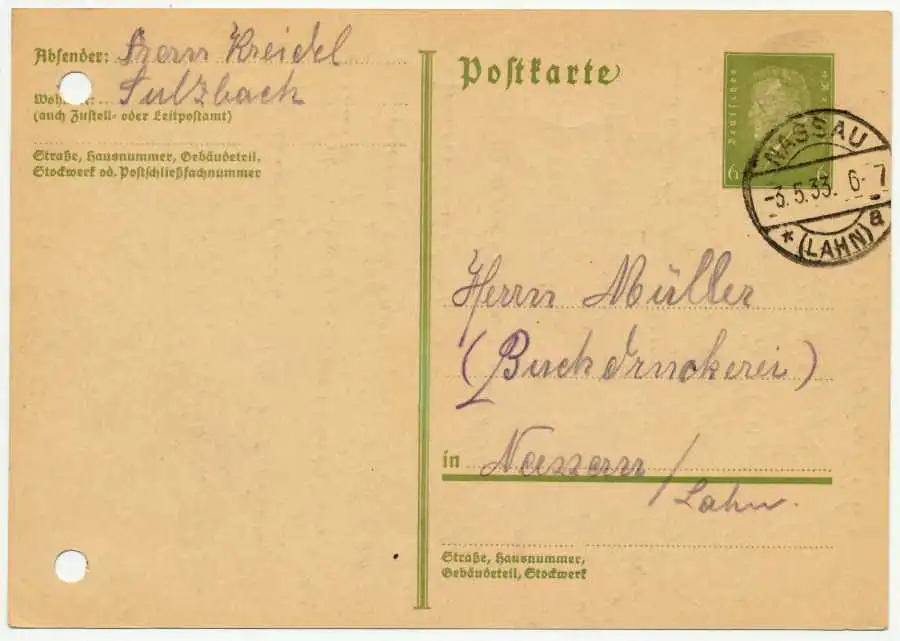 Absender: Kreidel
Wohnort: Sulzbach
(auch Zustell- oder Leitpostamt)
Straße, Hausnummer, Gebäudeteil,
Stockwerk od. Postschließfachnummer
Postkarte
Deutsches Reich
6 6
NASSAU
-3.5.33. 6-7
* (LAHN) a
Herrn Müller
(Buchdruckerei)
in Nassau /
Lahn.
Straße, Hausnummer,
Gebäudeteil, Stockwerk